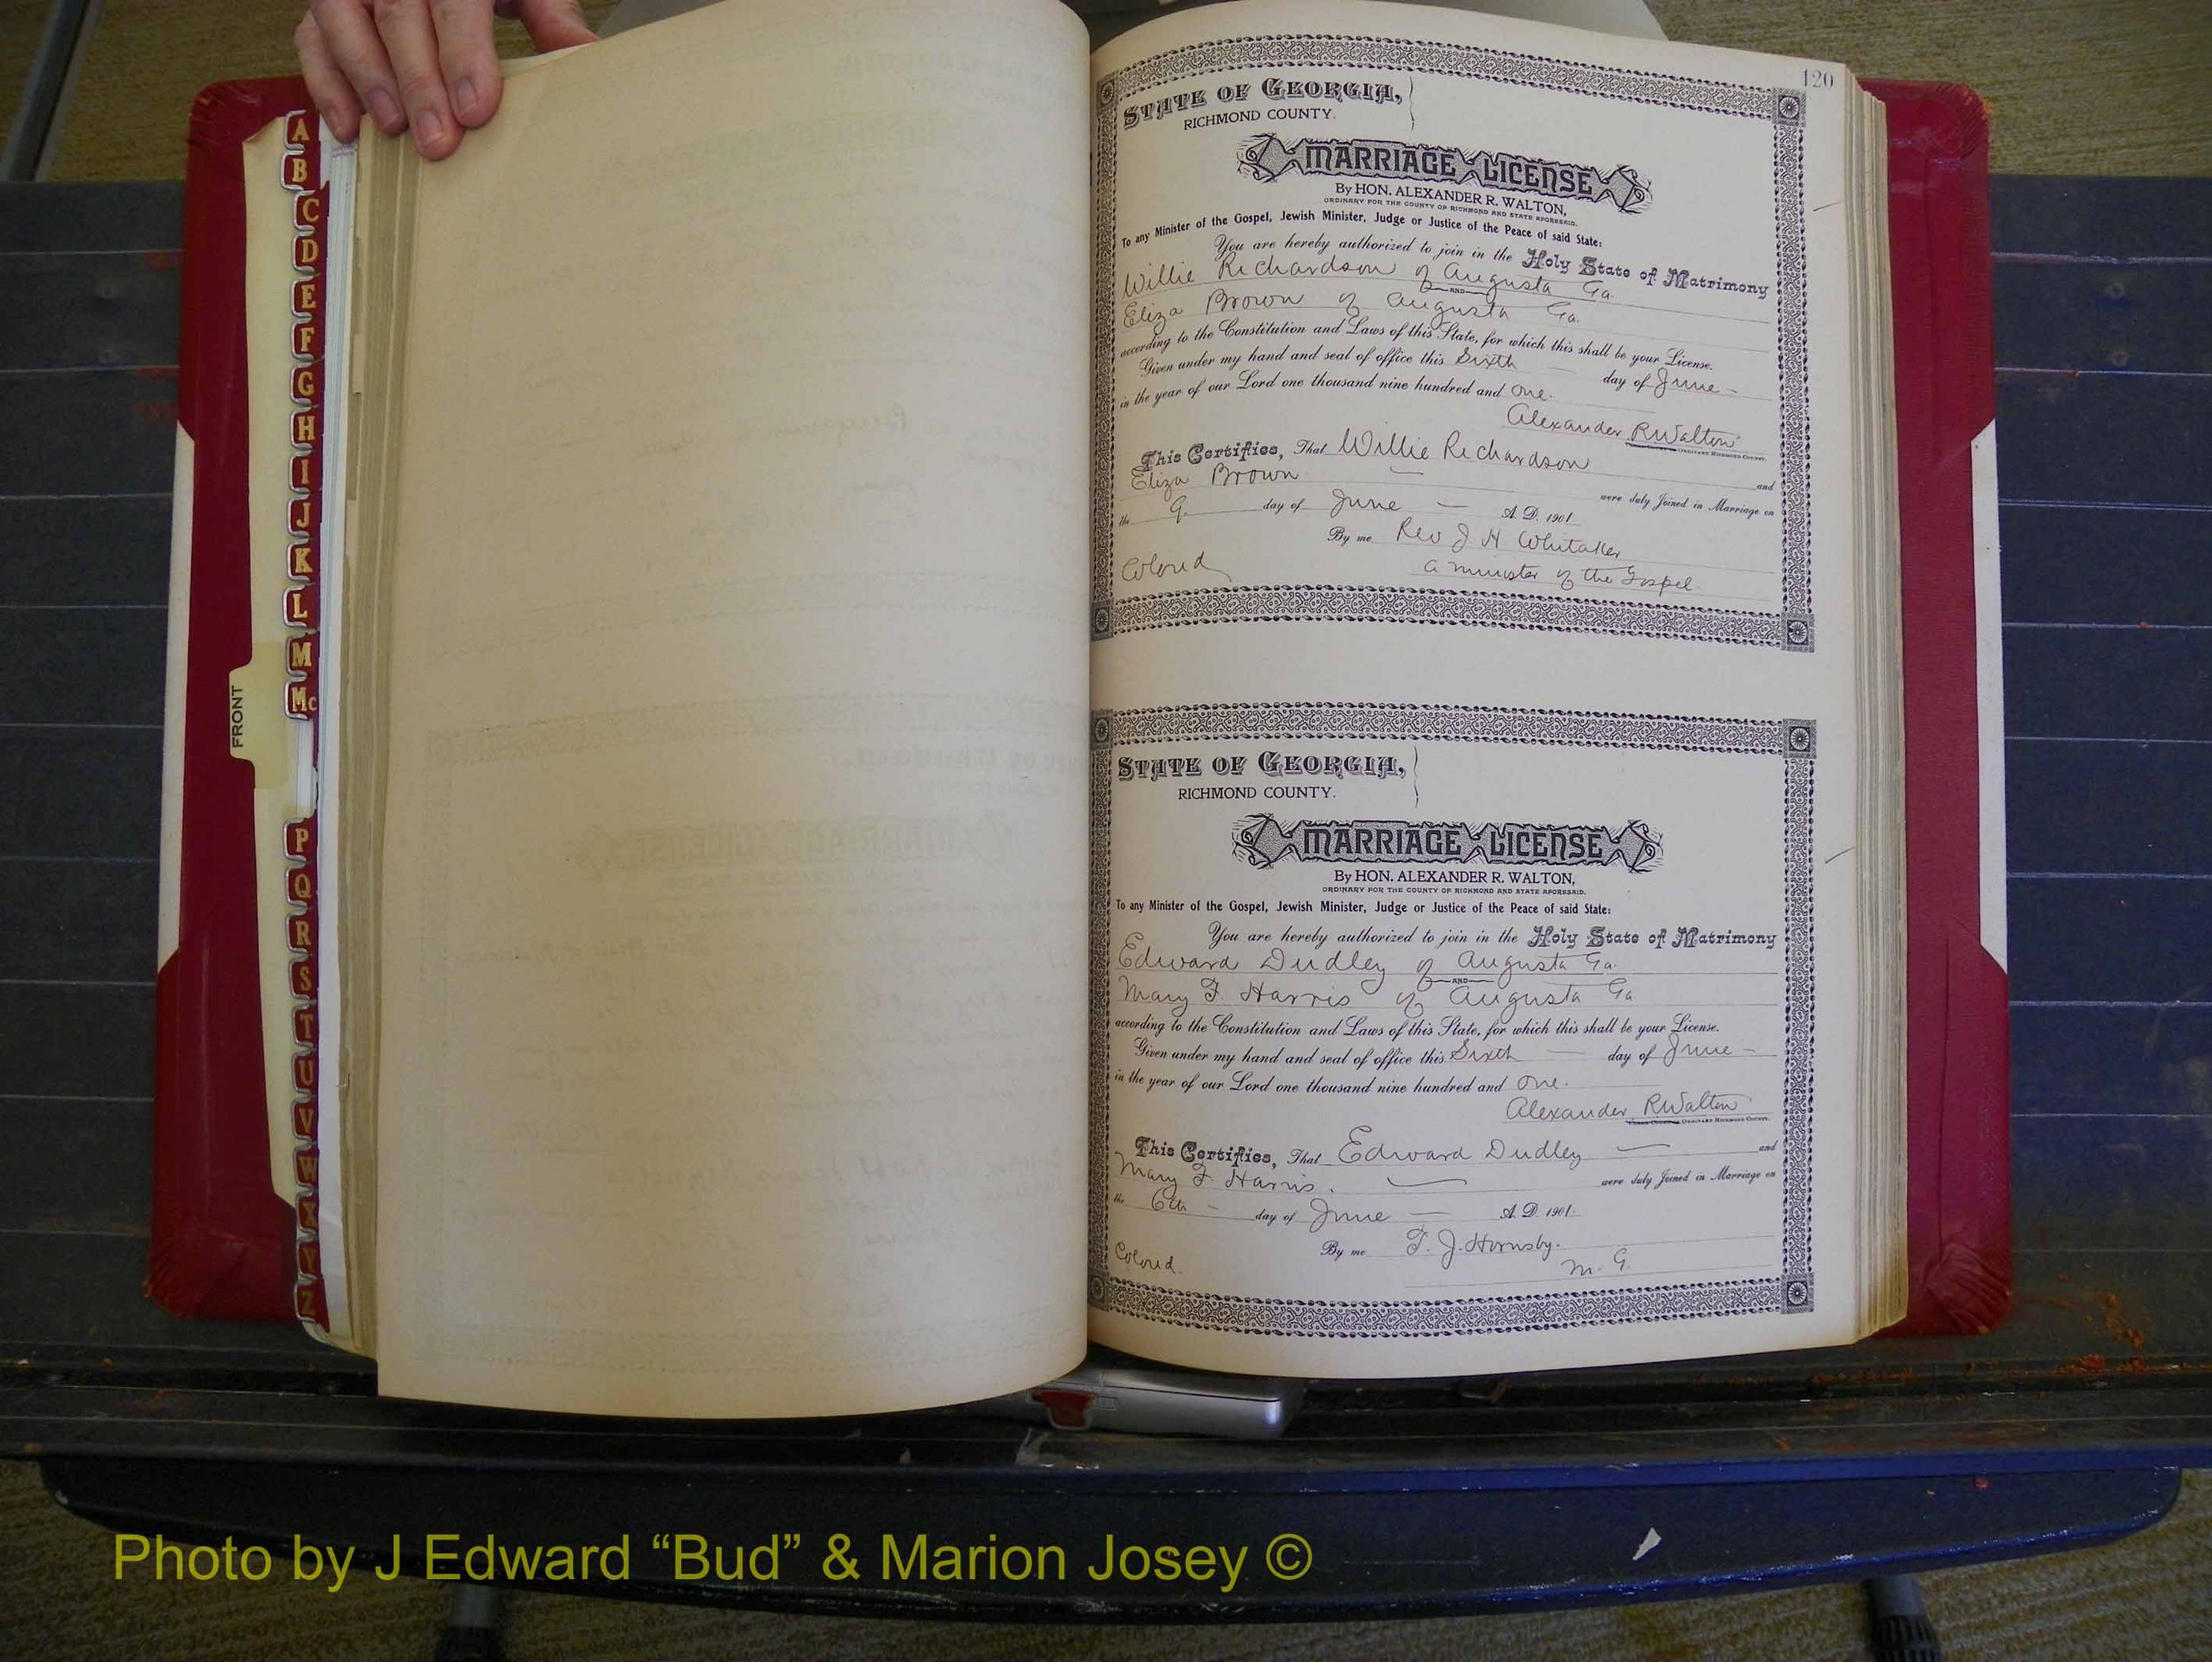 A
B
C
D
E
F
G
H
I
J
K
L
M
Mc
FRONT
P
Q
R
S
T
U
V
W
X
Y
Z
120
STATE OF GEORGIA,
RICHMOND COUNTY.
MARRIAGE LICENSE
By HON. ALEXANDER R. WALTON,
ORDINARY FOR THE COUNTY OF RICHMOND AND STATE AFORESAID.
To any Minister of the Gospel, Jewish Minister, Judge or Justice of the Peace of said State:
You are hereby authorized to join in the Holy State of Matrimony
Willie Richardson of Augusta Ga.
AND
Eliza Brown of Augusta Ga.
according to the Constitution and Laws of this State, for which this shall be your License.
Given under my hand and seal of office this Sixth day of June
in the year of our Lord one thousand nine hundred and One.
Alexander R Walton
ORDINARY RICHMOND COUNTY.
This Certifies, That Willie Richardson and
Eliza Brown were duly Joined in Marriage on
the 9. day of June A. D. 1901
By me Rev J. H Whitaker
Colored a minister of the Gospel.
STATE OF GEORGIA,
RICHMOND COUNTY.
MARRIAGE LICENSE
By HON. ALEXANDER R. WALTON,
ORDINARY FOR THE COUNTY OF RICHMOND AND STATE AFORESAID.
To any Minister of the Gospel, Jewish Minister, Judge or Justice of the Peace of said State:
You are hereby authorized to join in the Holy State of Matrimony
Edward Dudley of Augusta Ga.
AND
Mary F. Harris of Augusta Ga
according to the Constitution and Laws of this State, for which this shall be your License.
Given under my hand and seal of office this Sixth day of June
in the year of our Lord one thousand nine hundred and One.
Alexander R Walton
ORDINARY RICHMOND COUNTY.
This Certifies, That Edward Dudley and
Mary F. Harris. were duly Joined in Marriage on
the 6th day of June A. D. 1901.
By me T. J. Hornsby.
Colored. M. G.
Photo by J Edward “Bud” & Marion Josey ©